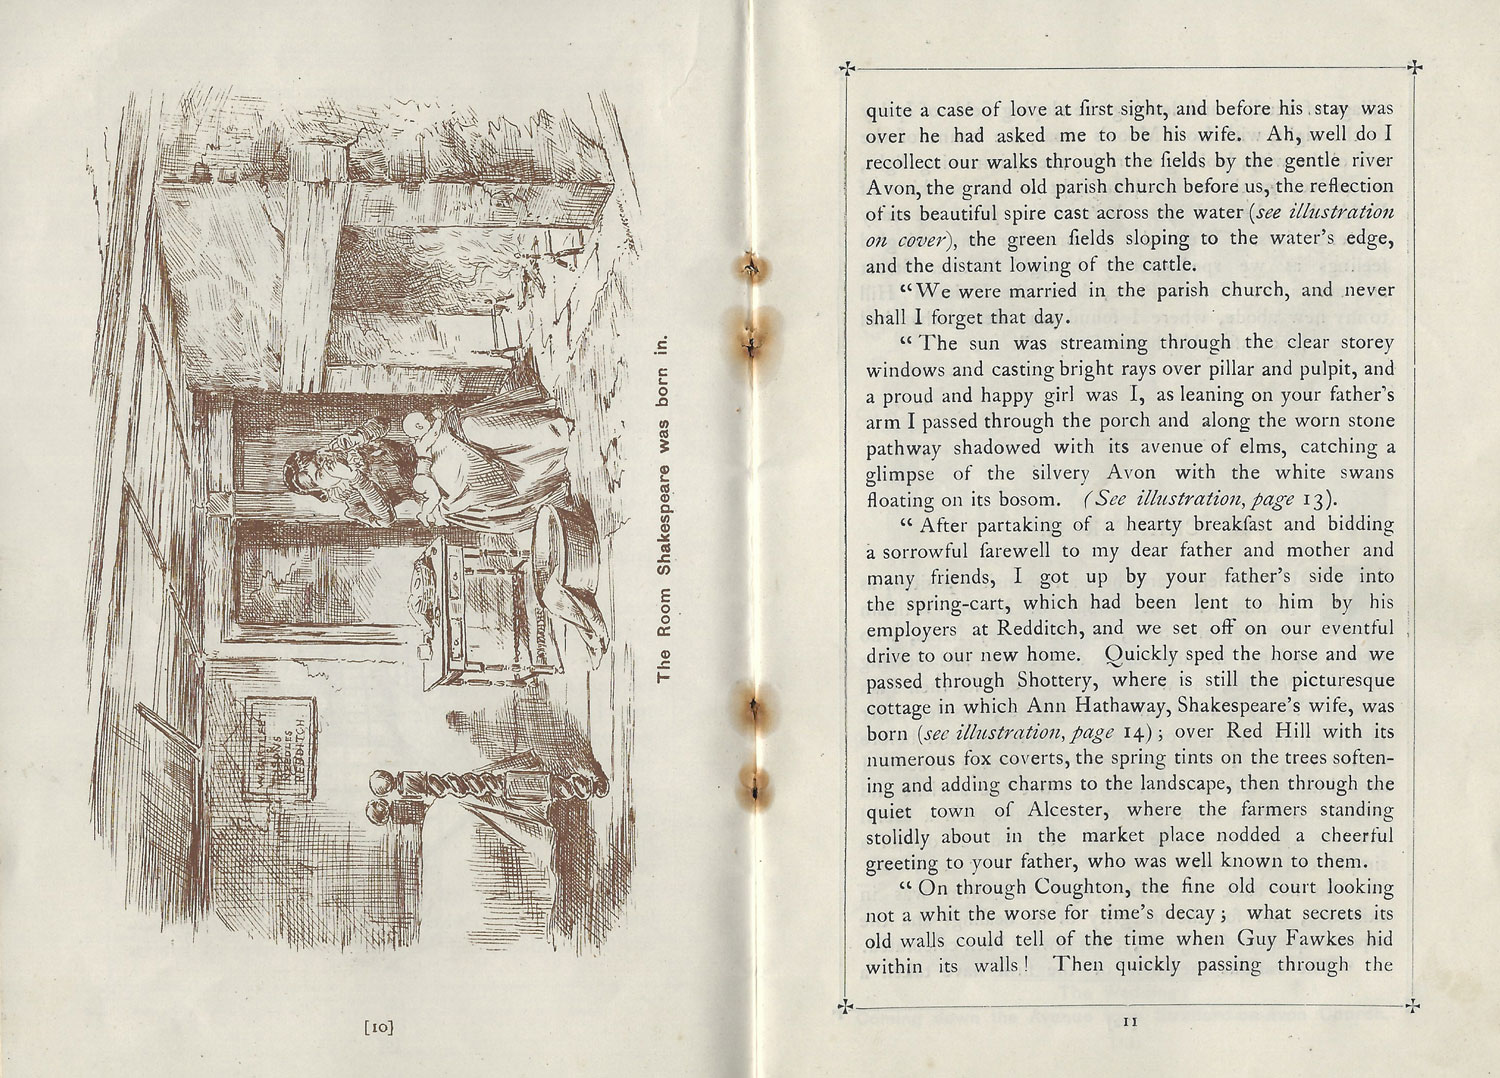 W. BARTLEET
& SONS
NEEDLES
REDDITCH
The Room Shakespeare was born in.
[10]
quite a case of love at first sight, and before his stay was
over he had asked me to be his wife. Ah, well do I
recollect our walks through the fields by the gentle river
Avon, the grand old parish church before us, the reflection
of its beautiful spire cast across the water (see illustration
on cover), the green fields sloping to the water's edge,
and the distant lowing of the cattle.
“We were married in the parish church, and never
shall I forget that day.
“The sun was streaming through the clear storey
windows and casting bright rays over pillar and pulpit, and
a proud and happy girl was I, as leaning on your father's
arm I passed through the porch and along the worn stone
pathway shadowed with its avenue of elms, catching a
glimpse of the silvery Avon with the white swans
floating on its bosom. (See illustration, page 13).
“After partaking of a hearty breakfast and bidding
a sorrowful farewell to my dear father and mother and
many friends, I got up by your father's side into
the spring-cart, which had been lent to him by his
employers at Redditch, and we set off on our eventful
drive to our new home. Quickly sped the horse and we
passed through Shottery, where is still the picturesque
cottage in which Ann Hathaway, Shakespeare's wife, was
born (see illustration, page 14); over Red Hill with its
numerous fox coverts, the spring tints on the trees soften-
ing and adding charms to the landscape, then through the
quiet town of Alcester, where the farmers standing
stolidly about in the market place nodded a cheerful
greeting to your father, who was well known to them.
“On through Coughton, the fine old court looking
not a whit the worse for time's decay; what secrets its
old walls could tell of the time when Guy Fawkes hid
within its walls! Then quickly passing through the
11